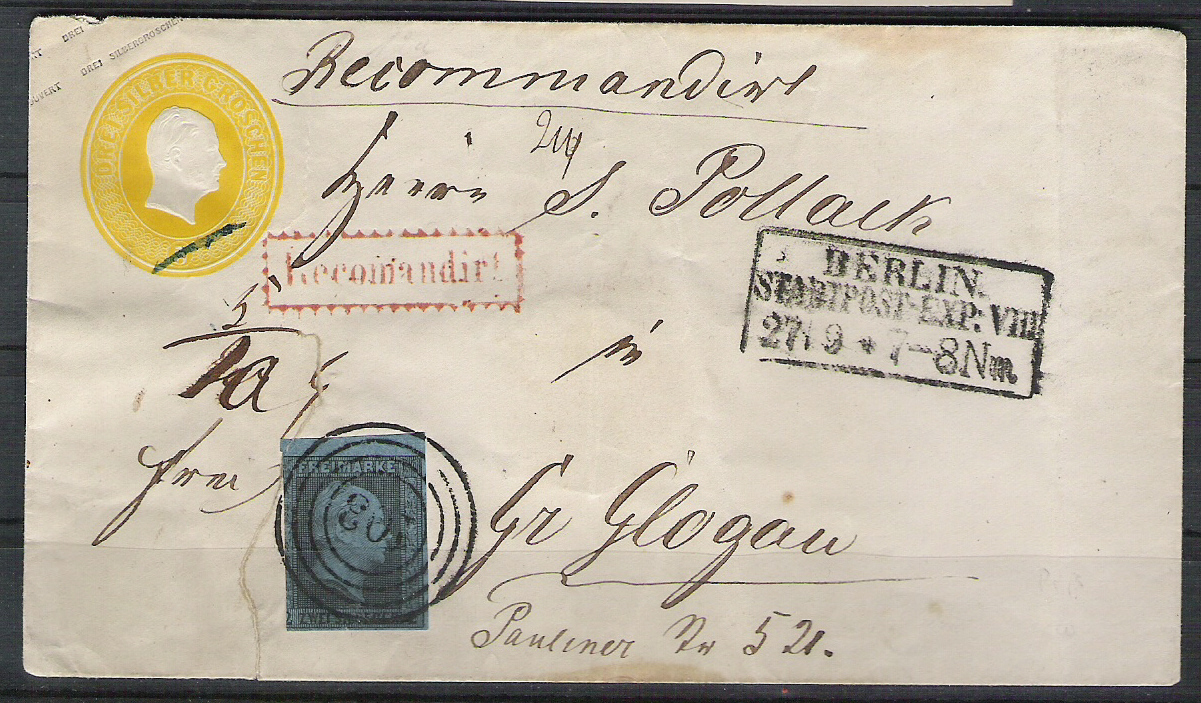 DREI SILBERGROSCHEN
DREI SILBER GROSCHEN
Recommandirt
Herrn S. Pollack
Recomandirt
BERLIN.
STADTPOST-EXP: VIII
27 9 * 7-8 Nm
in
frei
FREIMARKE
103
ZWEI
Gr Glogau
Pauliner Str 521.